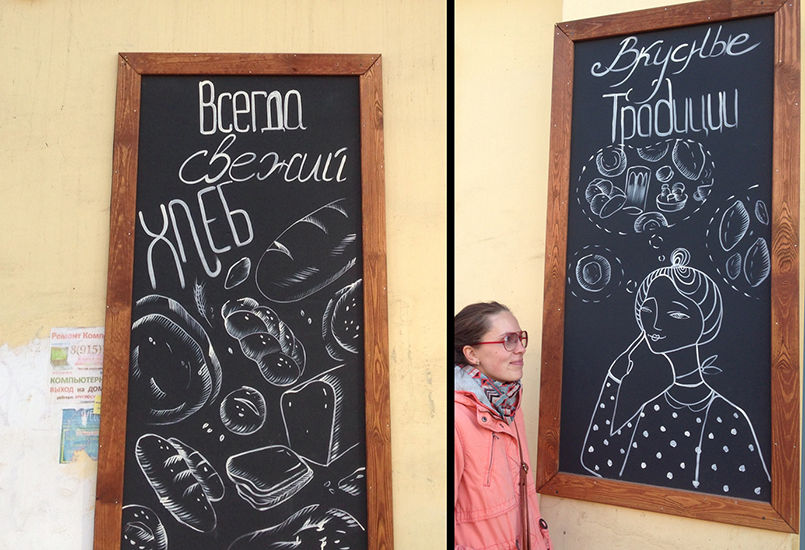 Всегда
свежий
хлеб
Ремонт Комп
8(915)
КОМПЬЮТЕРН
ВЫХОД на ДОМ
Вкусные
Традиции